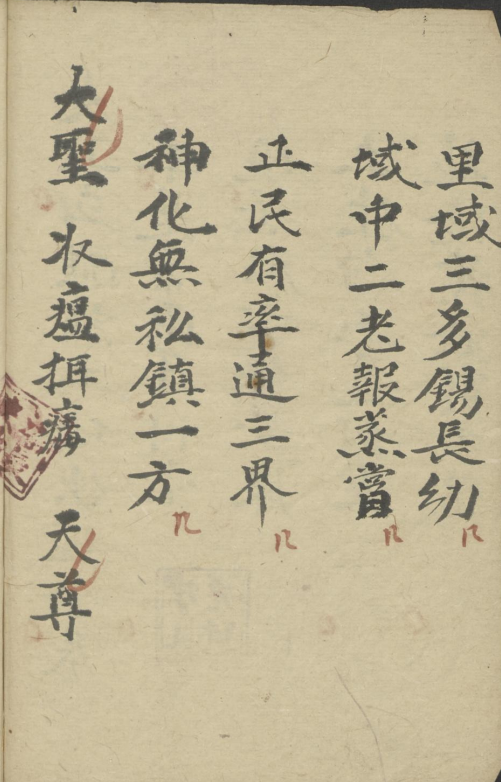 里域三多錫長幼
域中二老報蒸嘗
正民有率通三界
神化無私鎮一方
大聖 收瘟𢬿 天尊